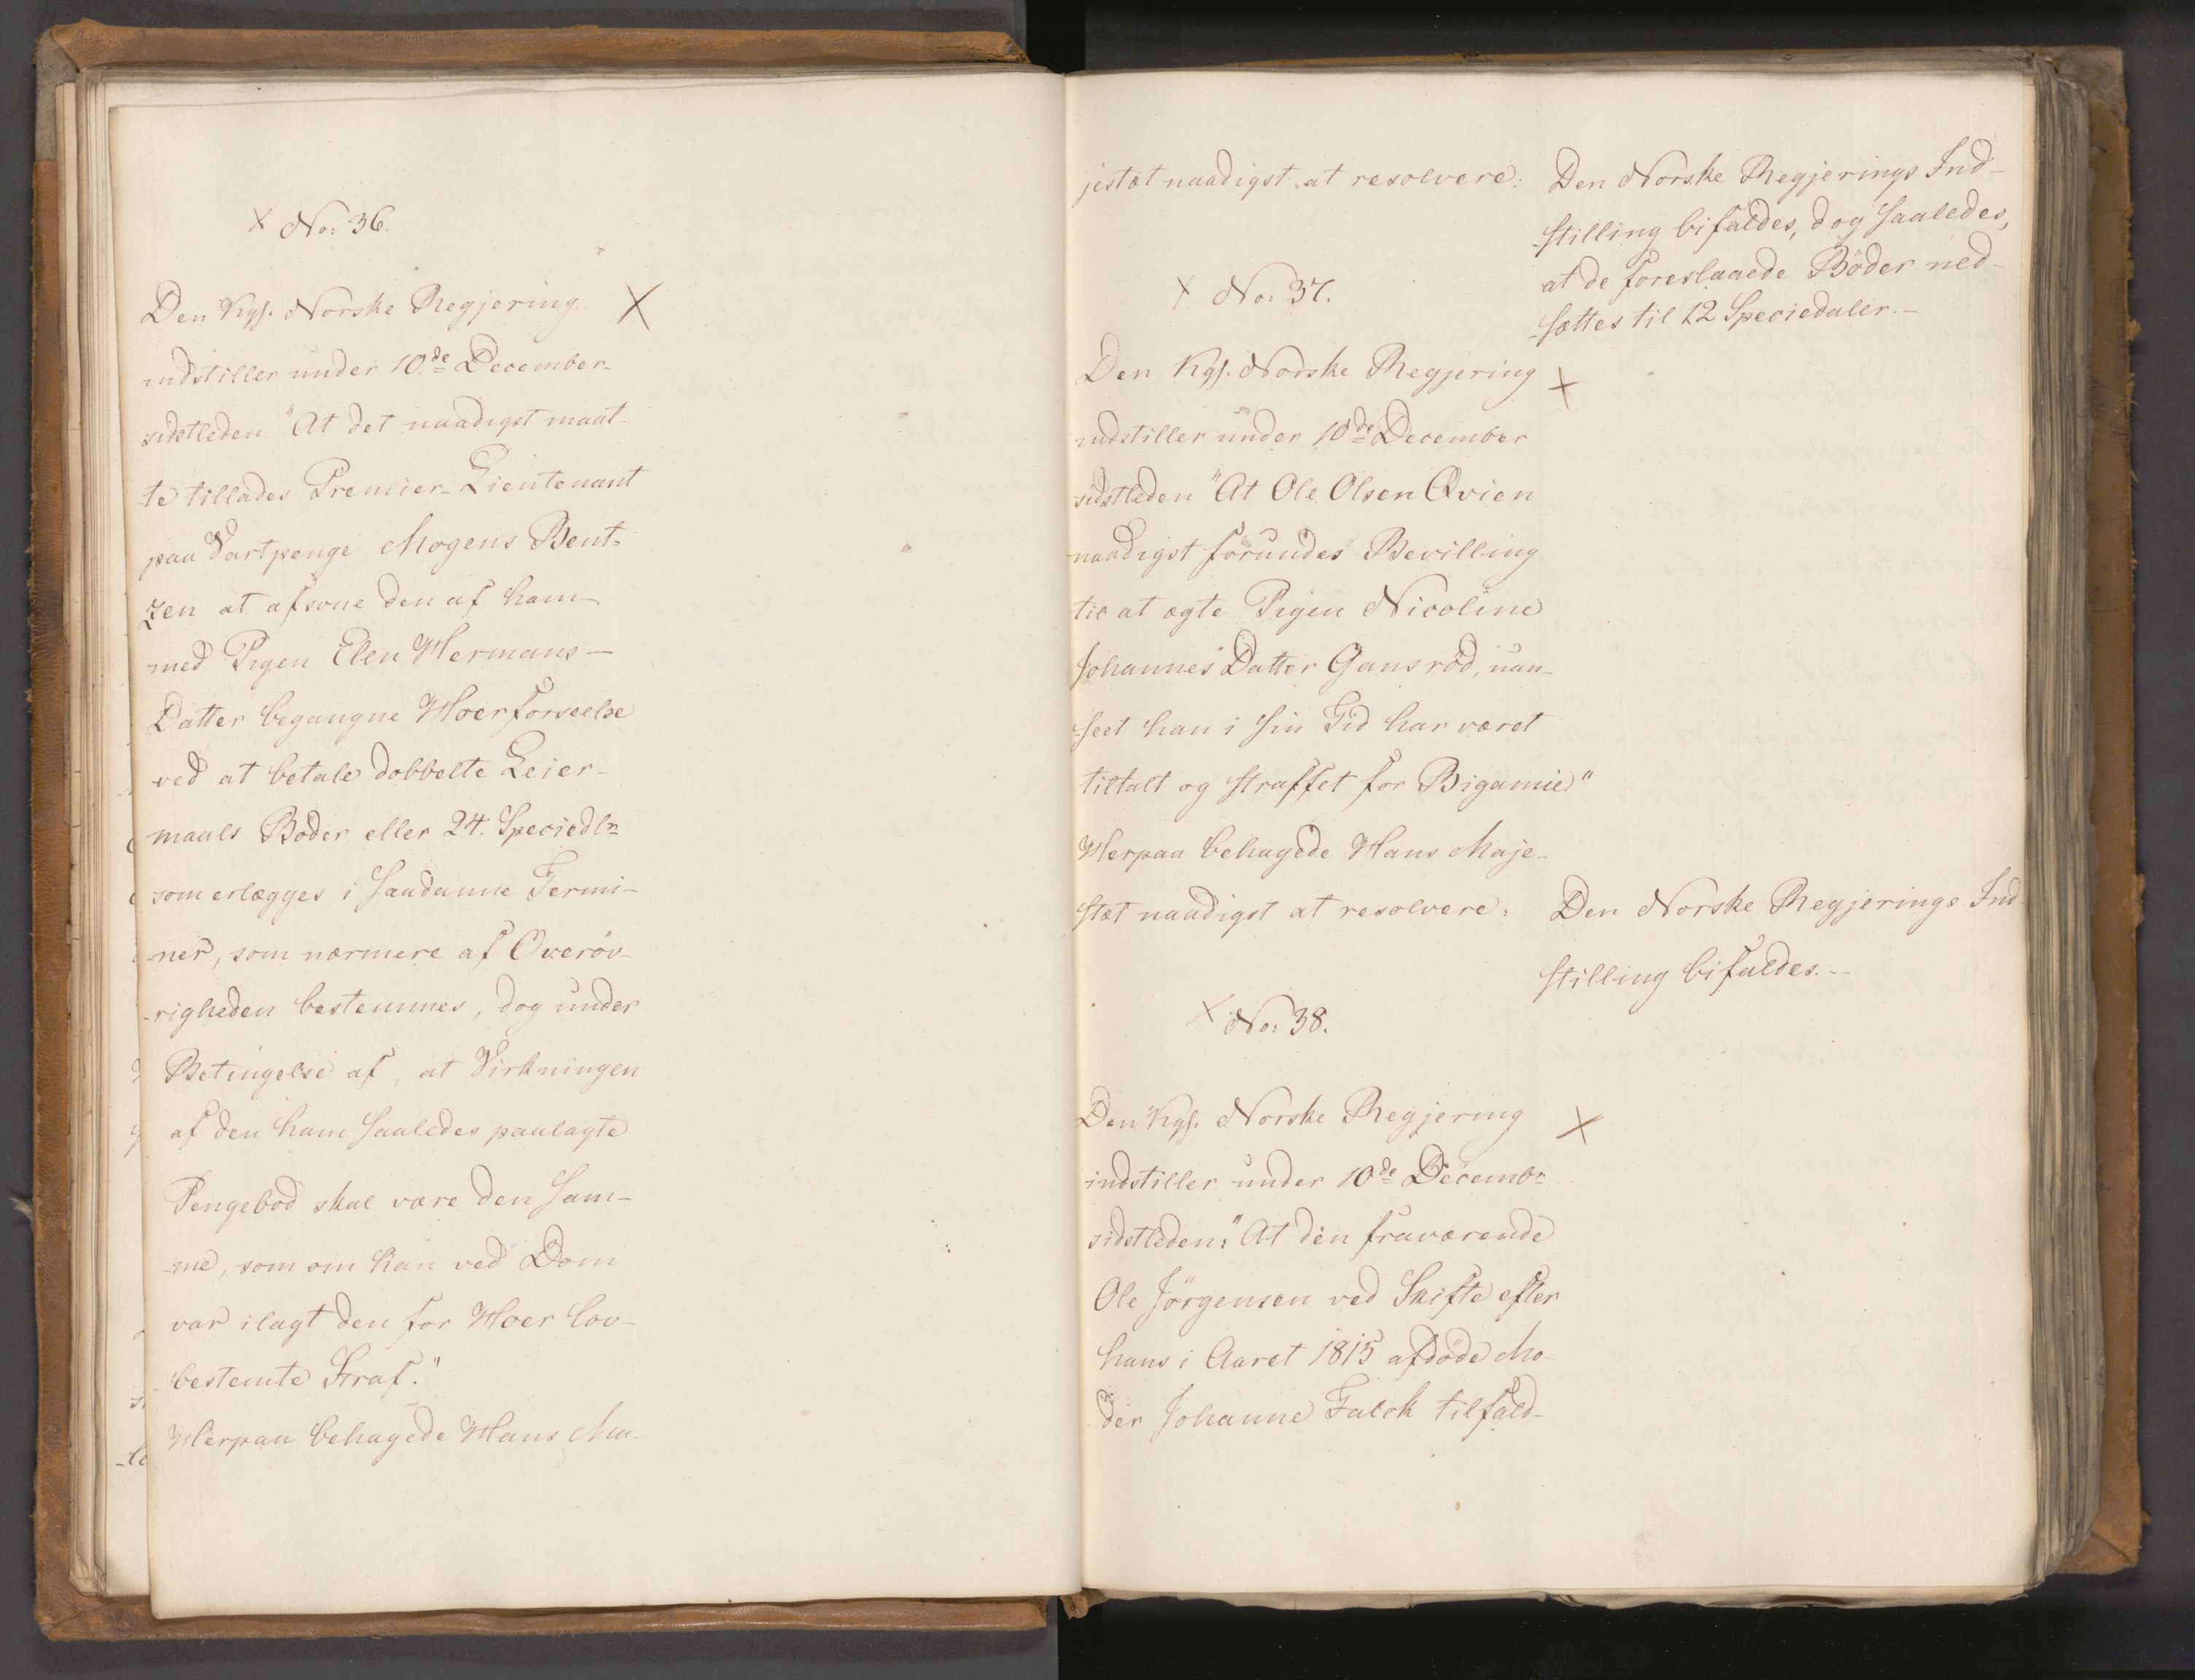 No: 36.
Den Kgl. Norske Regjering
indstiller under 10de December
sidstleden "At det naadigst maat
te tillades Premier-Lieutenant
paa Vartpenge Mogens Bent-
zen at afsone den af ham
med Pigen Elen Hermans-
Datter begangne Hoerforseelse
ved at betale dobbelte Leier-
maals Bøder eller 24. Speciedlr
som erlægges i saadanne Termi-
ner, som nærmere af Overöv-
righeden bestemmes, dog under
Betingelse af, at Virkningen
af den ham saaledes paalagte
Pengebod skal være den sam-
me, som om han ved Dom
var ilagt den for Hoer lov-
bestemte Straf."
Herpaa behagede Hans Ma-
jestæt naadigst at resolvere:
Den Norske Regjerings Ind-
stilling bifaldes, dog saaledes,
at de foreslaaede Böder ned-
sættes til 12 Speciedaler.-
No: 37.
Den Kgl. Nodske Regjering
indstiller under 10de December
sidstleden "At Ole Olsen Qvien
naadigst forundes Bevilling
til at ægte Pigen Nicoline
Johannes Datter Gansröd, uan-
seet han i sin Tid har været
tiltalt og straffet for Bigamie"
Herpaa behagede Hans Maje-
stæt naadigst at resolvere:
Den Norske Regjerings Ind-
stilling bifaldes.-
No: 38.
Den Kgl. Norske Regjering
indstiller under 10de Decembr
sidstleden: "At den fraværende
Ole Jörgensen ved Skifte efter
hans i Aaret 1815 afdöde Mo-
der Johanne Falck tilfald-